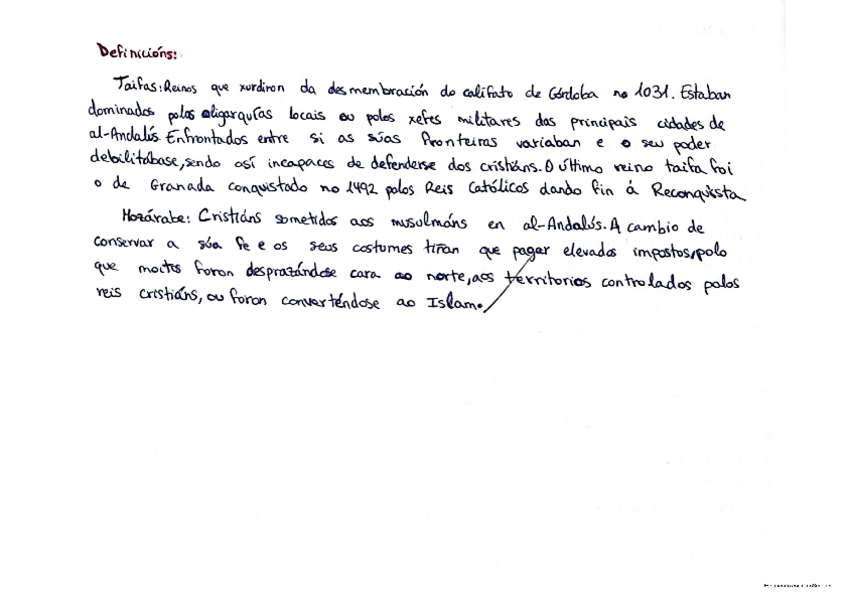 Definicións:
Taifas: Reinos que xurdiron da desmembración do califato de Córdoba no 1031. Estaban
dominados polas oligarquías locais ou polos xefes militares das principais cidades de
al-Andalús. Enfrontados entre si as súas fronteiras variaban e o seu poder
debilitábase, sendo así incapaces de defenderse dos cristiáns. O último reino taifa foi
o de Granada conquistado no 1492 polos Reis Católicos dando fin á Reconquista
Mozárabe: Cristiáns sometidos aos musulmáns en al-Andalús. A cambio de
conservar a súa fe e os seus costumes tiñan que pagar elevados impostos, polo
que moitos foron desprazándose cara ao norte, aos territorios controlados polos
reis cristiáns, ou foron converténdose ao Islam.